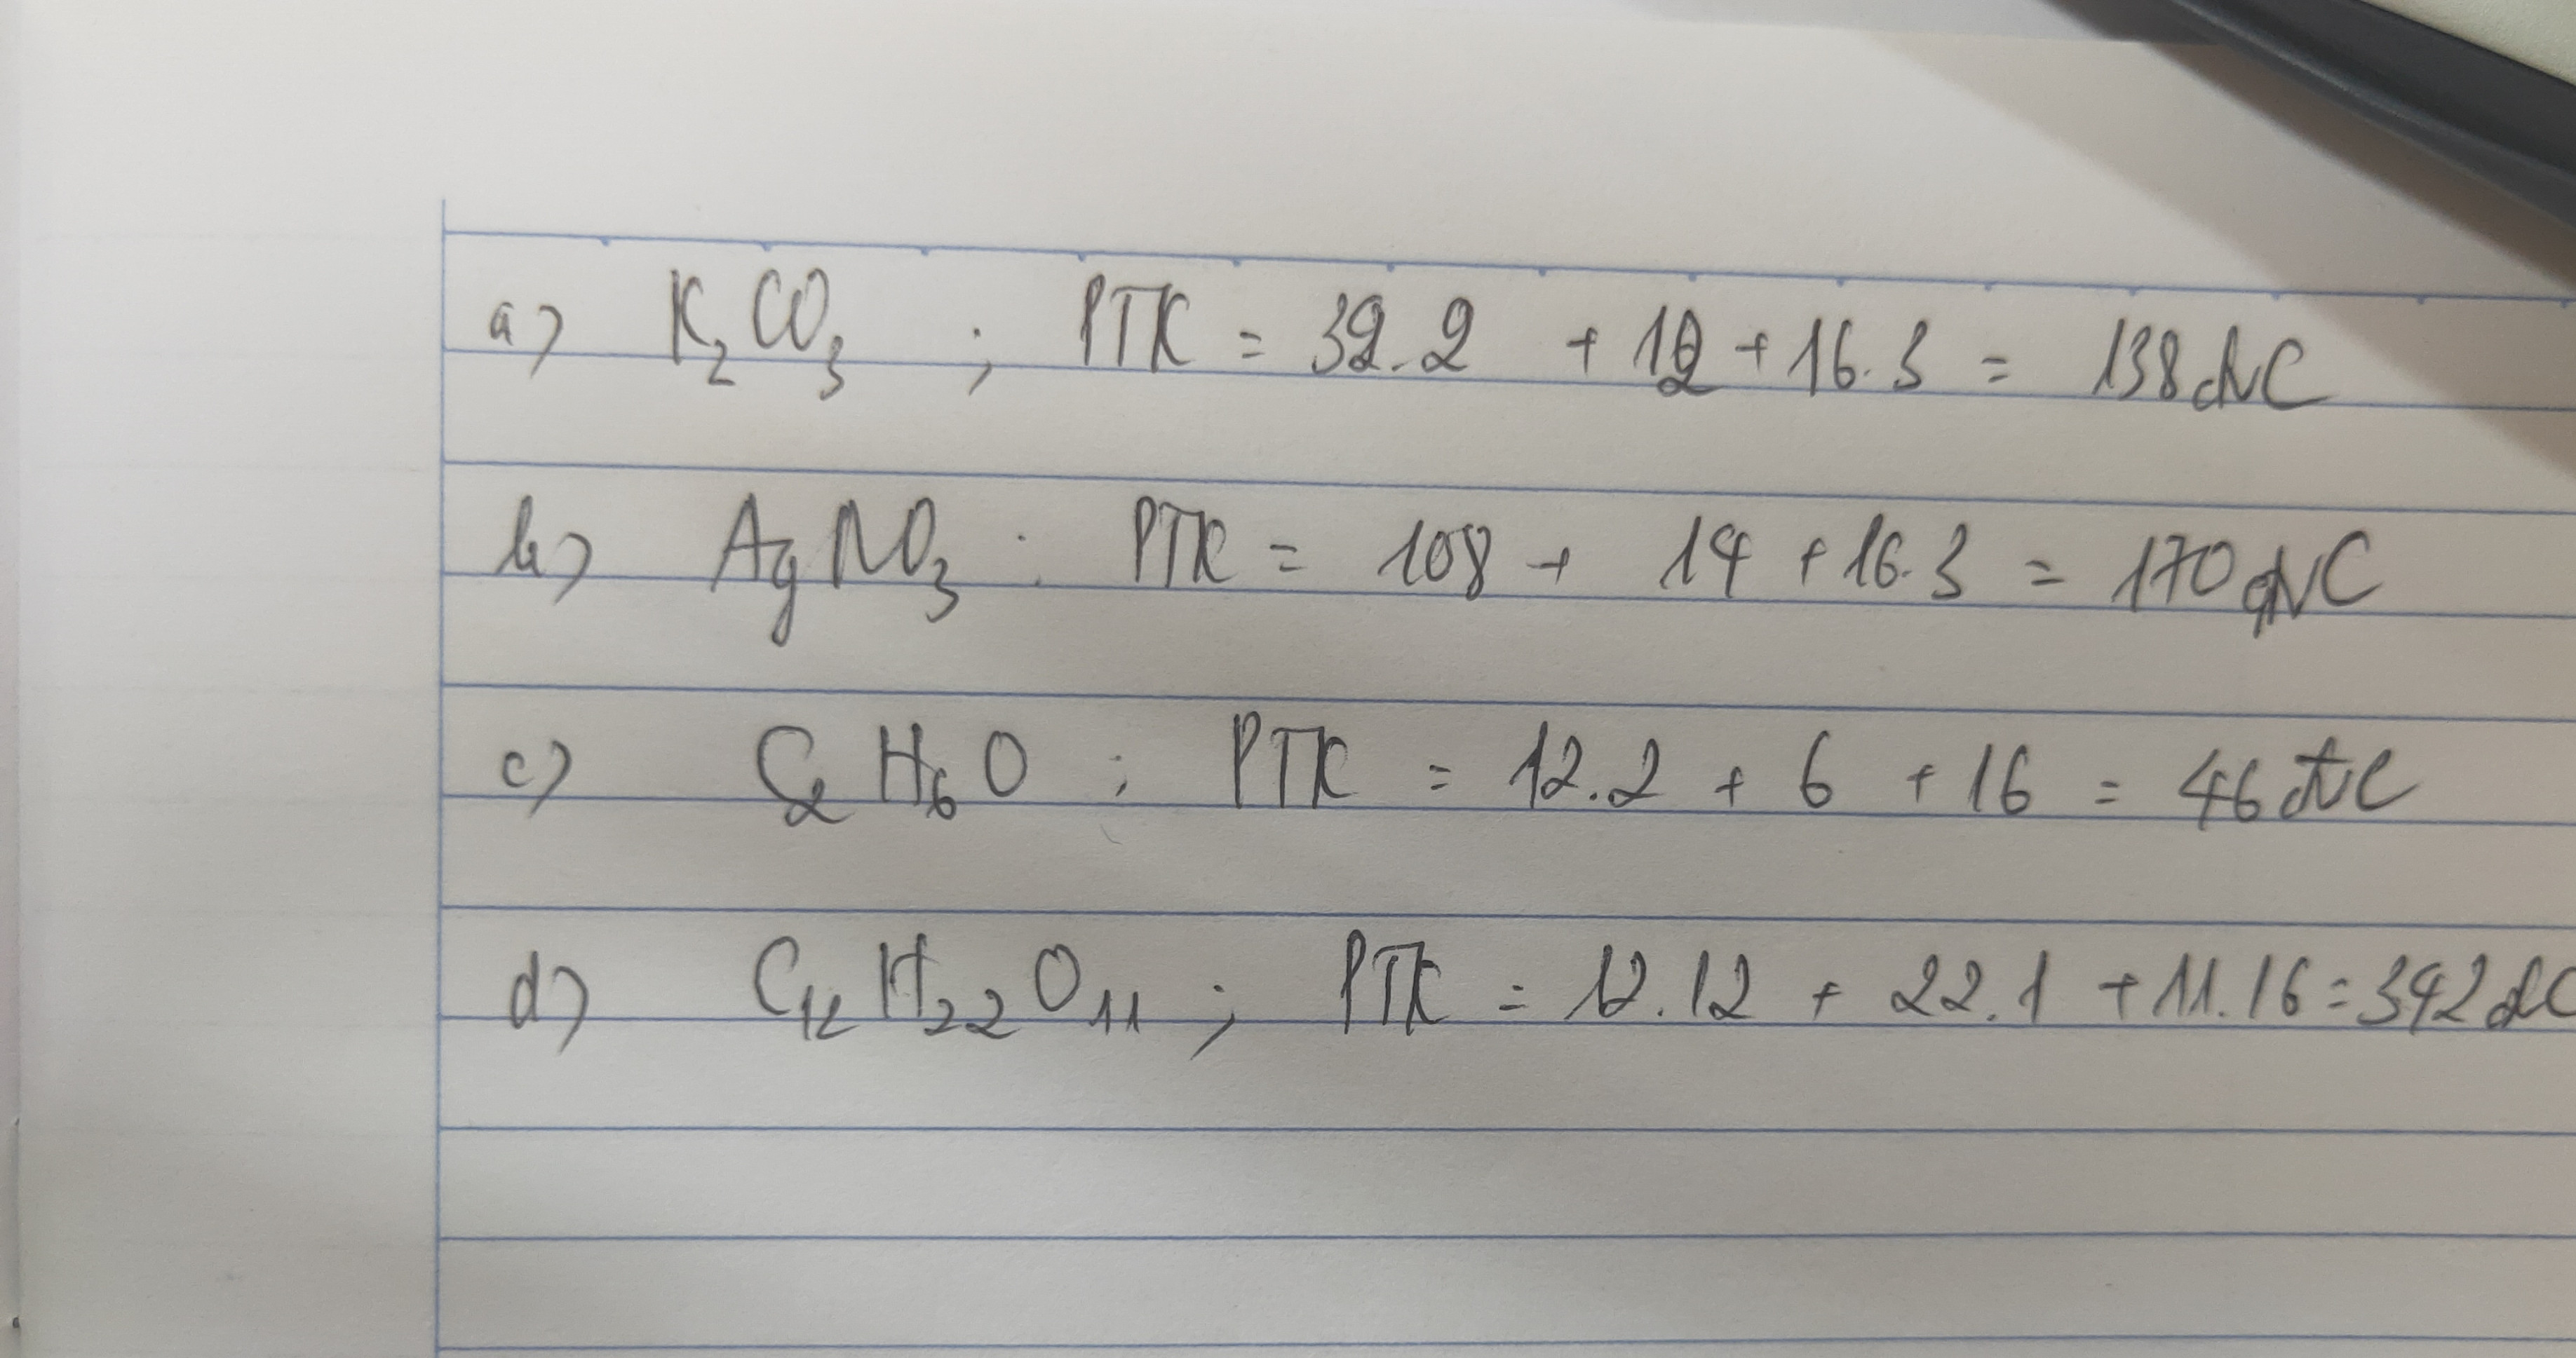 a) K₂CO₃ ; PTK = 39.2 + 12 + 16.3 = 138 đvC
b) AgNO₃ : PTK = 108 + 14 + 16.3 = 170 đvC
c) C₂H₆O : PTK = 12.2 + 6 + 16 = 46 đvC
d) C₁₂H₂₂O₁₁ ; PTK = 12.12 + 22.1 + 11.16 = 342 đC